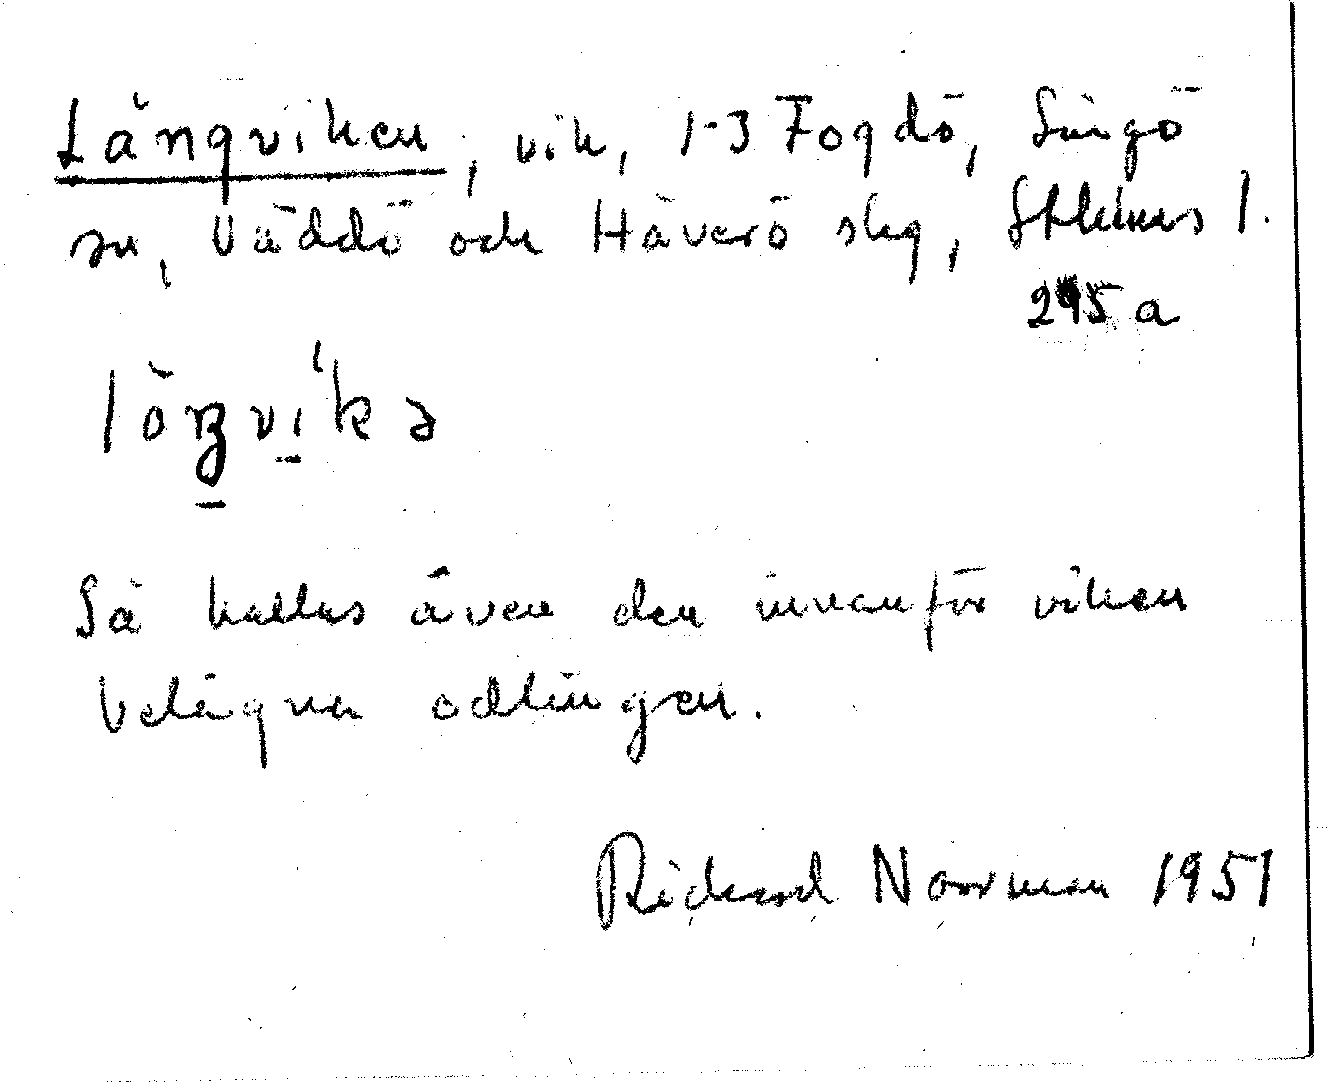 Långviken, vik, 1-3 Fogdö, Singö
sn, Väddö och Häverö skg, Sthlms l.
295 a
Så kallas även den innanför viken
belägna odlingen.
Rickard Norrman 1951